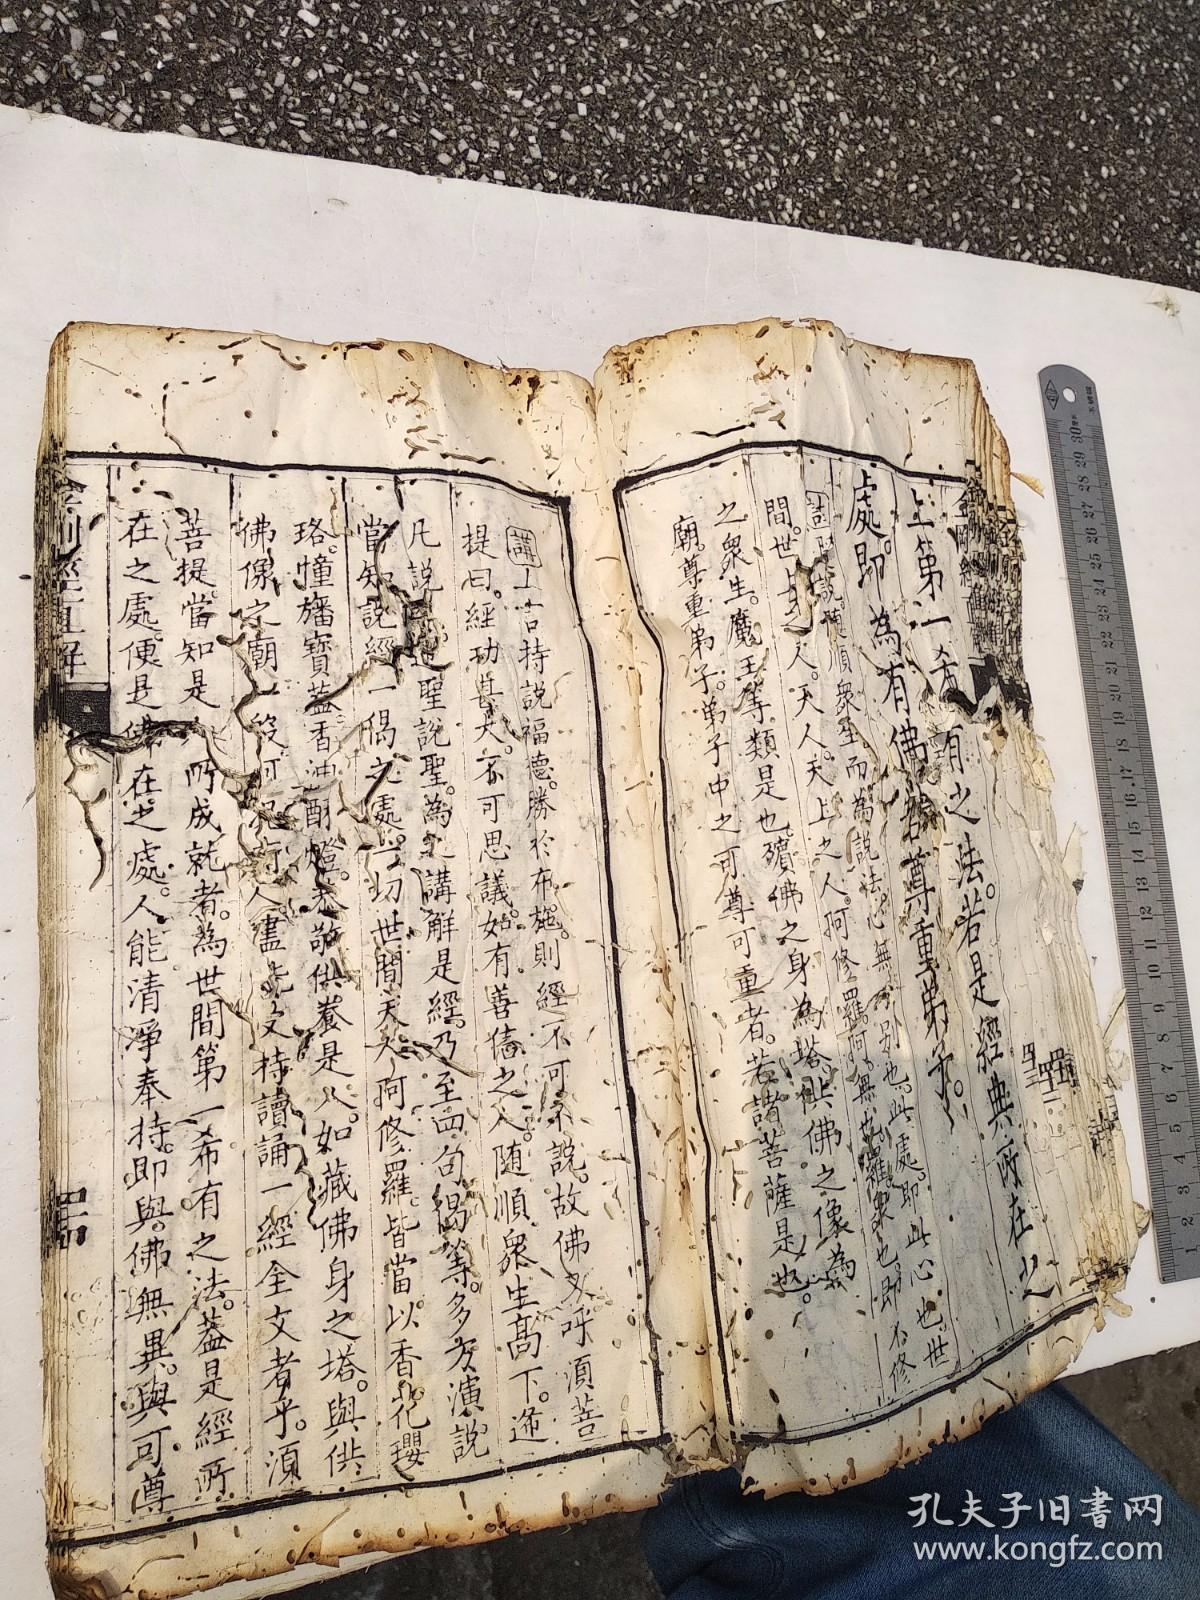 上第一希有之法。若是經典所在之
處。即為有佛。若尊重弟子。
隨順衆生。而為說法。心無分別也。此處。即此心也。世
間。世上之人。天人。天上之人。阿修羅。阿。無也。修羅衆也。即不修
之衆生。魔王等類是也。殯佛之身為塔。供佛之像為
廟。尊重弟子。弟子中之可尊可重者。若諸菩薩是也。
講 上言持說福德。勝於布施。則經不可不說。故佛又呼須菩
提曰。經功甚大。不可思議。如有善信之人。隨順衆生高下。遞
凡說 聖說聖。為之講解是經。乃至四句偈等。多方演說
當知說經一偈之處。一切世間天人阿修羅。皆當以香花瓔
珞。幢旛寶蓋。香油酥燈。恭敬供養是人。如藏佛身之塔。與供
佛像之廟一般。何況有人盡能受持讀誦一經全文者乎。須
菩提。當知是人所成就者。為世間第一希有之法。蓋是經所
在之處。便是佛在之處。人能清淨奉持。即與佛無異。與可尊
金剛經直解
孔夫子旧書网
www.kongfz.com